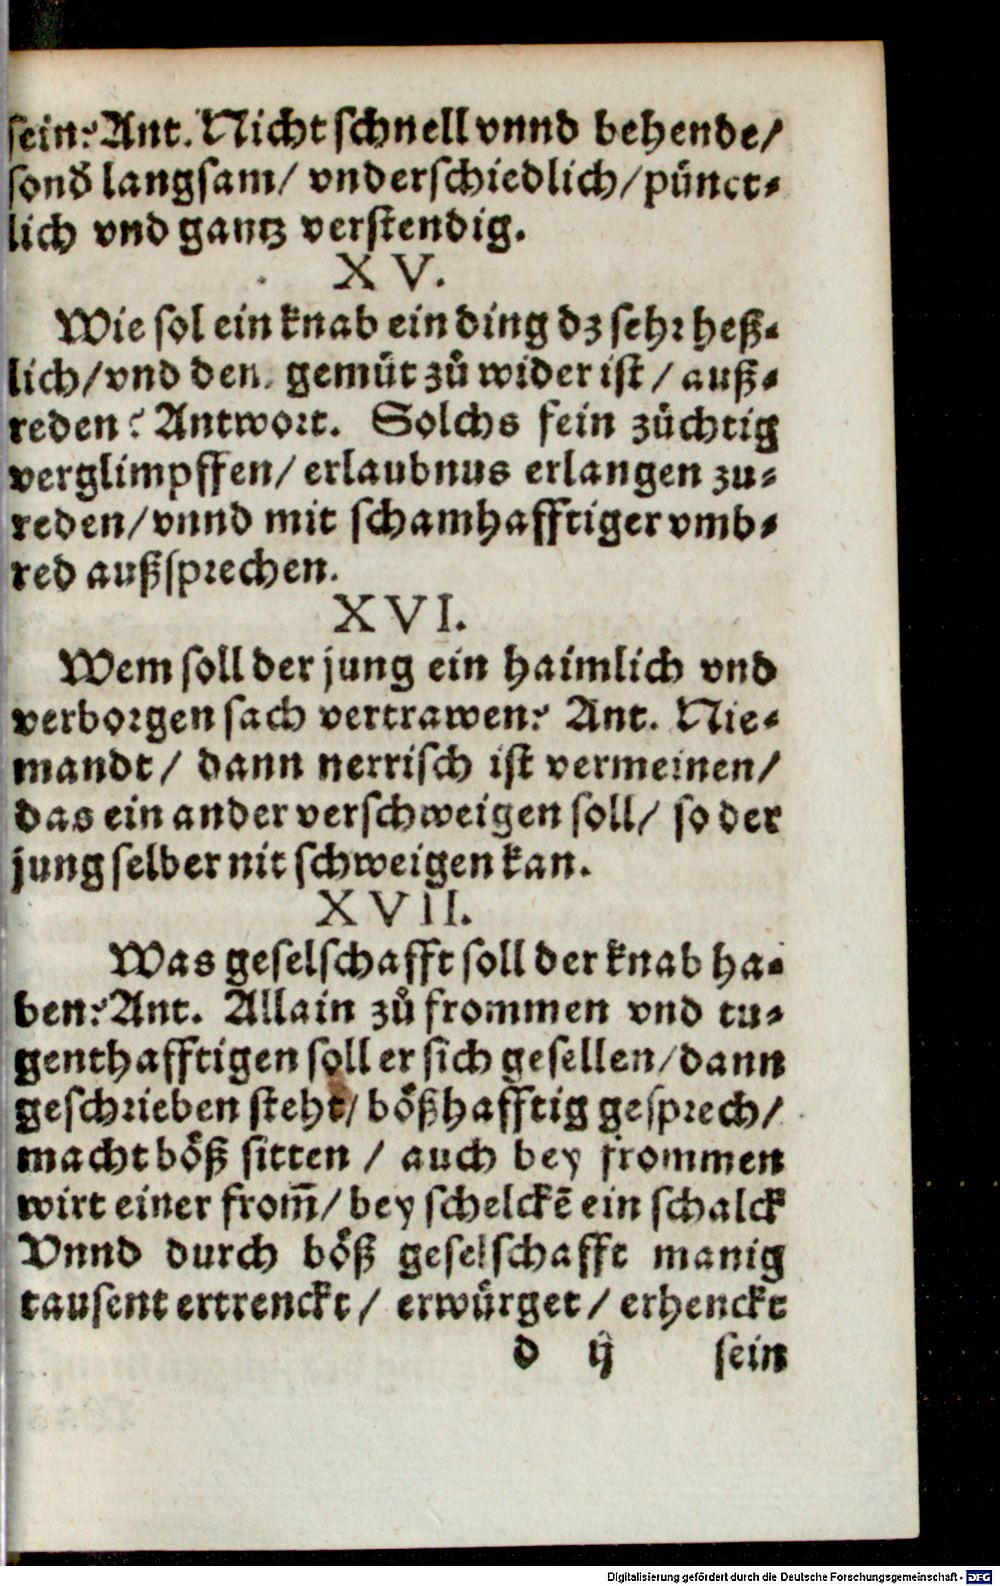 sein? Ant. Nicht schnell vnnd behende/
sond̃ langsam/ vnderschiedlich/ pünct-
lich vnd gantz verstendig.
XV.
Wie sol ein knab ein ding dz sehr heß-
lich/ vnd den gemüt zů wider ist/ auß-
reden? Antwort. Solchs fein züchtig
verglimpffen/ erlaubnus erlangen zu-
reden/ vnnd mit schamhafftiger vmb-
red außsprechen.
XVI.
Wem soll der jung ein haimlich vnd
verborgen sach vertrawen? Ant. Nie-
mandt/ dann nerrisch ist vermeinen/
das ein ander verschweigen soll/ so der
jung selber nit schweigen kan.
XVII.
Was geselschafft soll der knab ha-
ben? Ant. Allain zů frommen vnd tu-
genthafftigen soll er sich gesellen/ dann
geschrieben steht/ bößhafftig gesprech/
macht böß sitten/ auch bey frommen
wirt einer from̃/ bey schelckẽ ein schalck
Vnnd durch böß geselschafft manig
tausent ertrenckt/ erwürget/ erhenckt
d ij sein
Digitalisierung gefördert durch die Deutsche Forschungsgemeinschaft - DFG